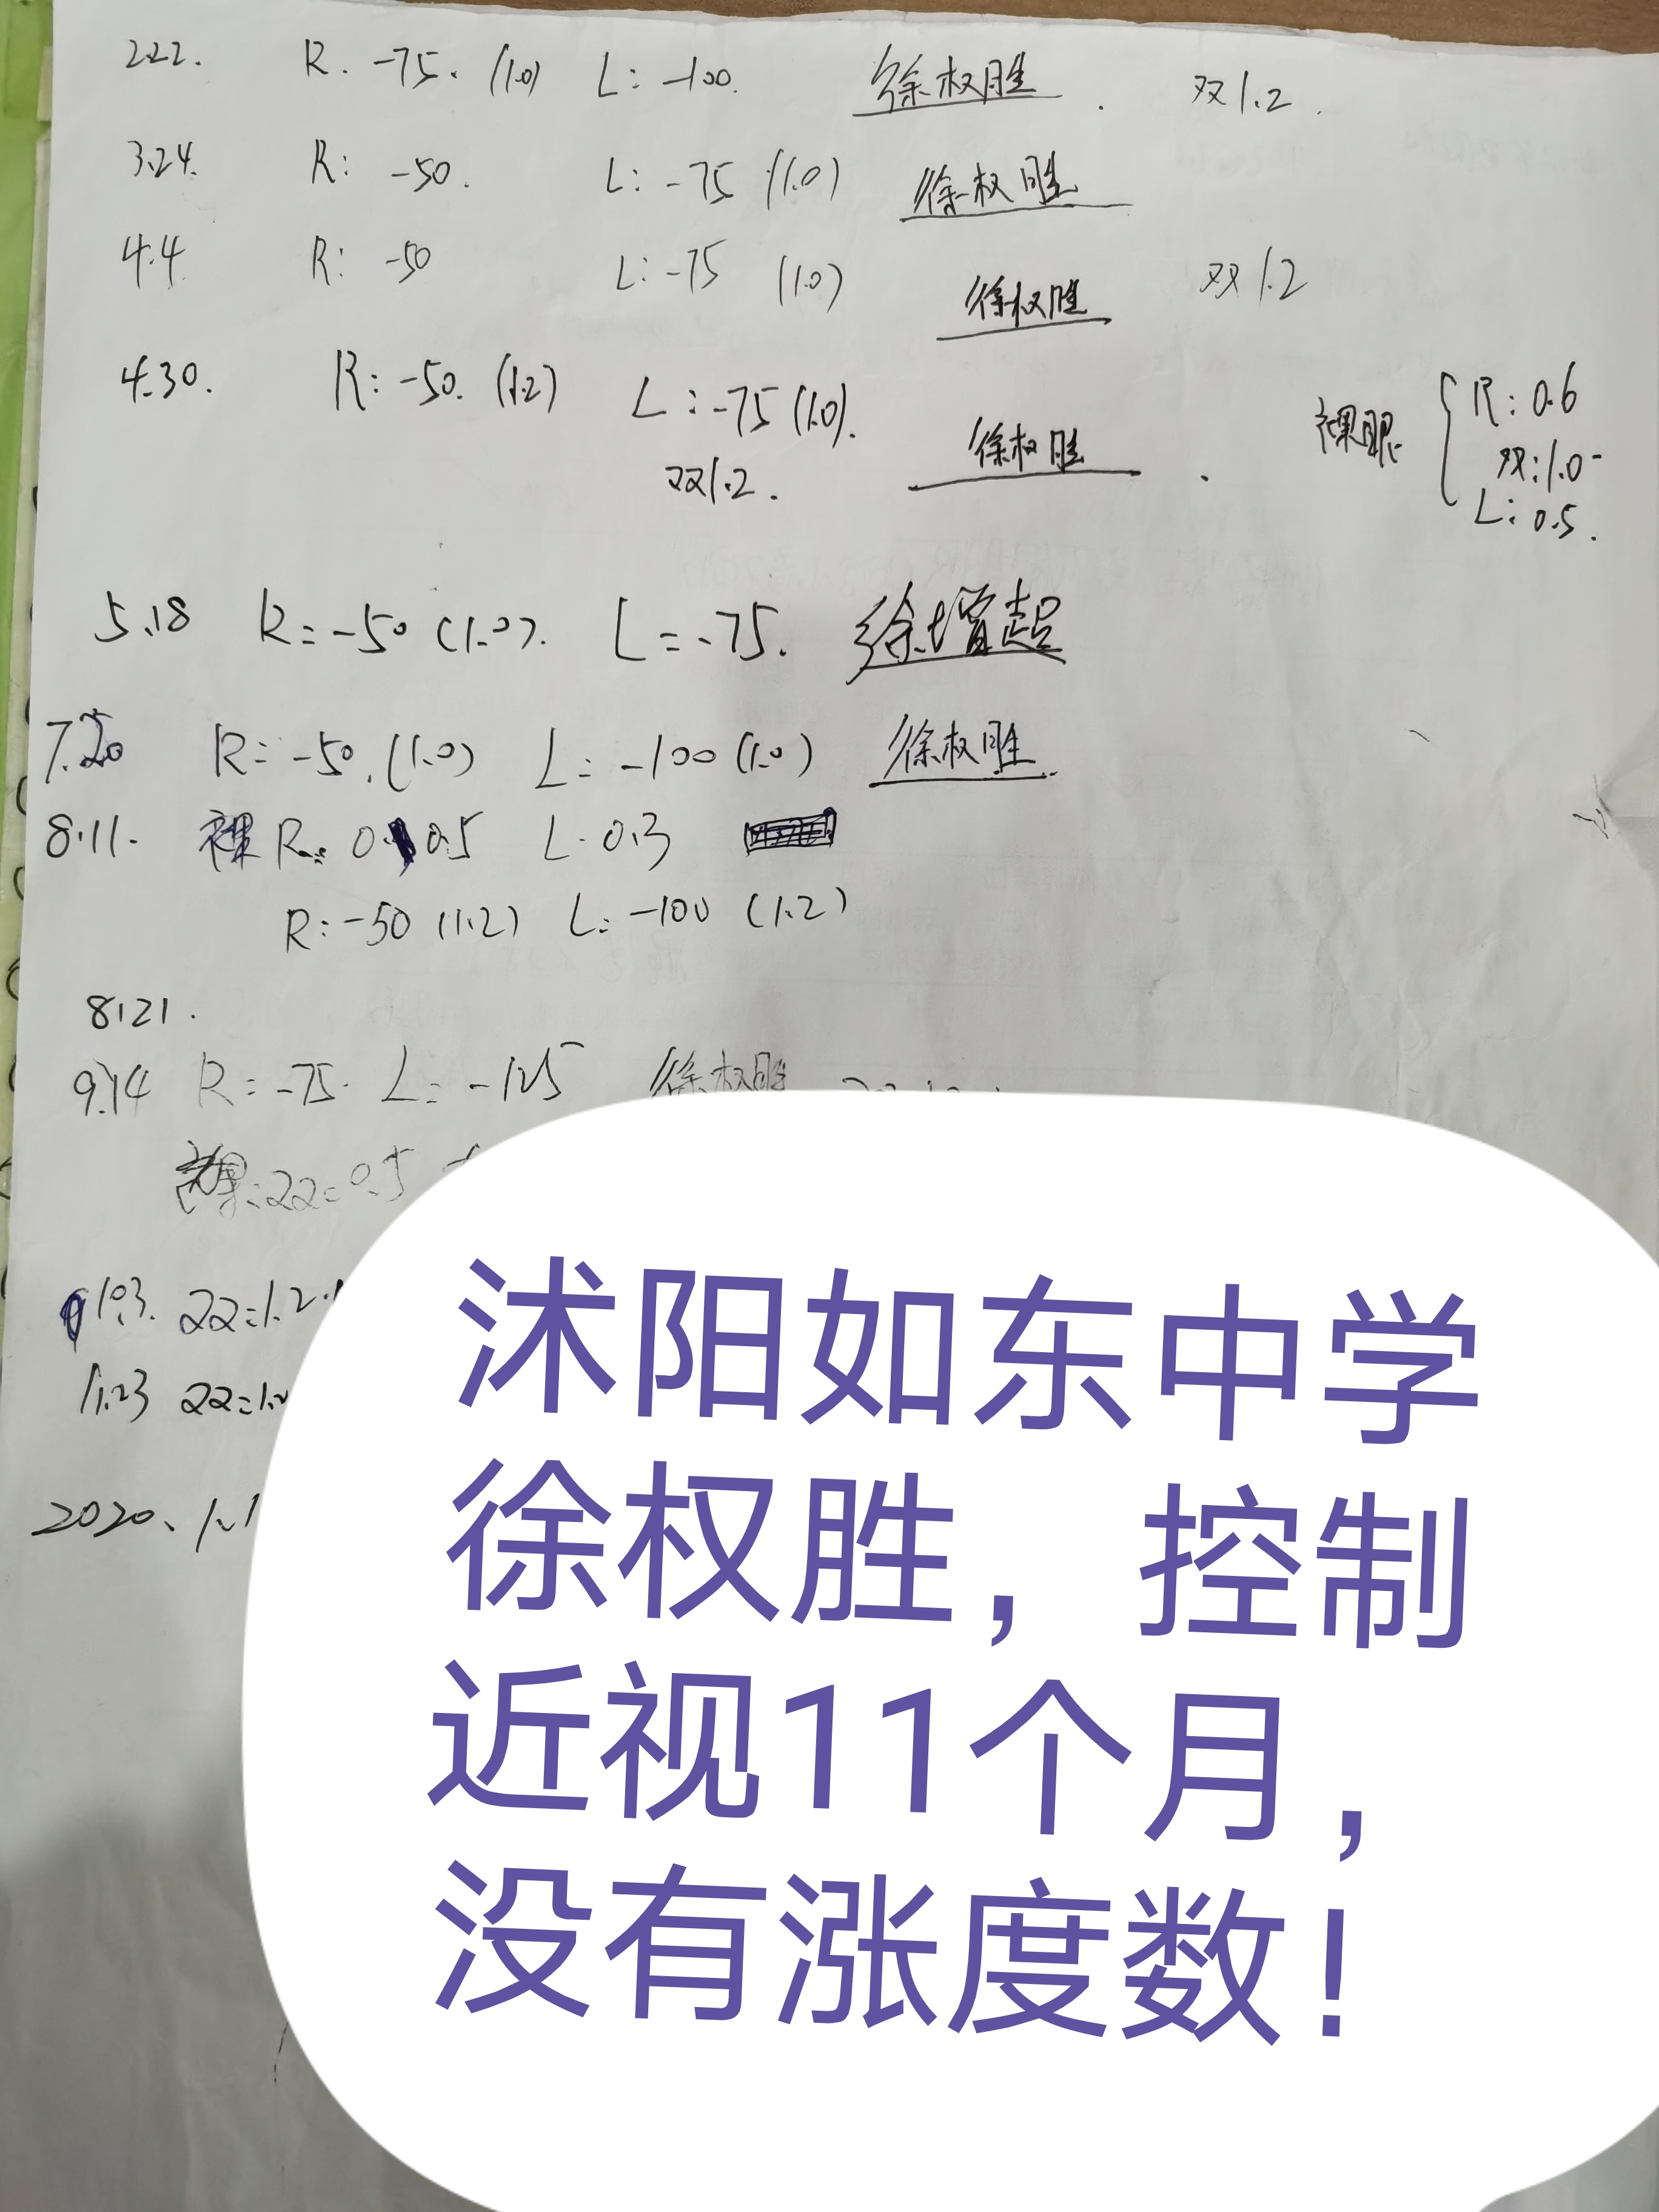 2.22. R. -75. (1.0) L: -100. 徐权胜. 双1.2.
3.24. R: -50. L: -75 (1.0) 徐权胜
4.4 R: -50 L: -75 (1.0) 徐权胜 双1.2
4.30. R: -50. (1.2) L: -75 (1.0). 徐权胜. 裸眼 R: 0.6
双1.2. 双:1.0-
L: 0.5.
5.18 R= -50 (1.0). L= -75. 徐增起
7.20 R= -50. (1.0) L= -100 (1.0) 徐权胜.
8.11. 裸 R: 0.5 L: 0.3
R: -50 (1.2) L: -100 (1.2)
8.21.
9.14 R= -75. L= -125 徐权胜
裸:双=0.5
10.3. 双=1.2.
11.23 双=1.
2020、1.1
沭阳如东中学
徐权胜，控制
近视11个月，
没有涨度数！